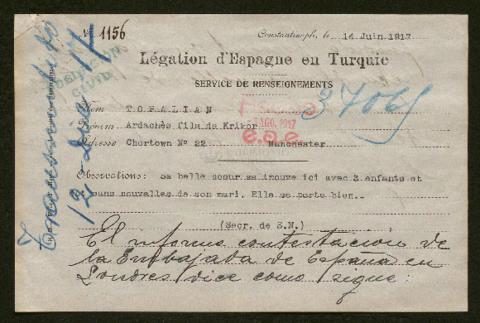 Nº 1156
Constantinople, le 14 Juin. 1917
Légation d'Espagne en Turquie
SERVICE DE RENSEIGNEMENTS
Nom TOPALIAN
Prénom Ardachès fils de Krikor
Adresse Chortown Nº 22 Manchester
Observations: Sa belle soeur se trouve ici avec 3 enfants et
sans nouvelles de son mari. Elle se porte bien..
(Secr. de S.M.)
El informe contestacion de
la Embajada de España en
Londres dice como sigue:
AGO. 1917
3706